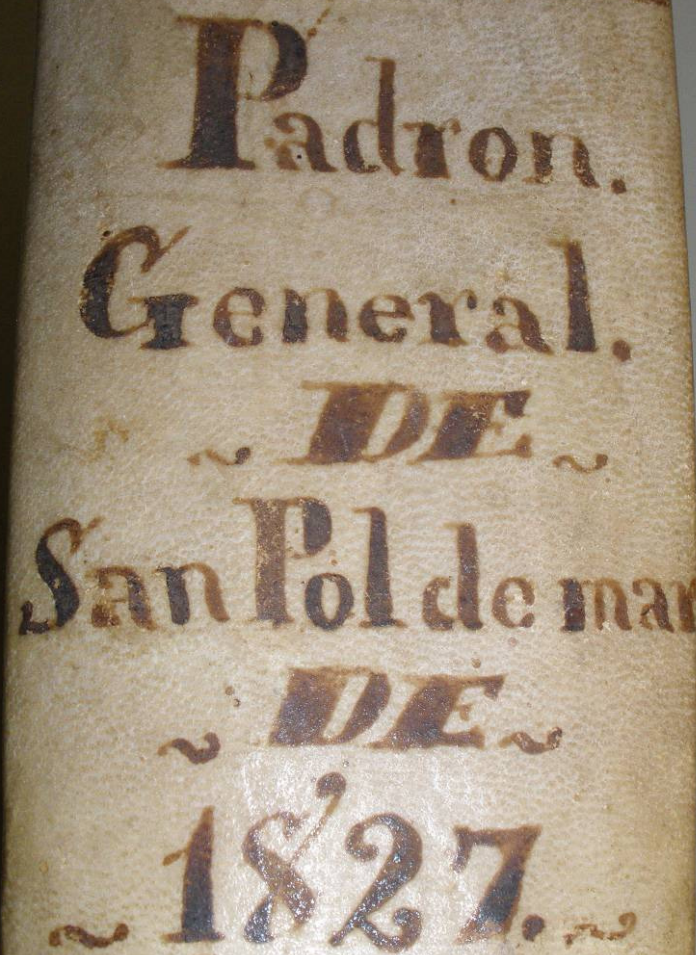 Padron.
General.
~ DE ~
San Pol de mar
~ DE ~
1827.